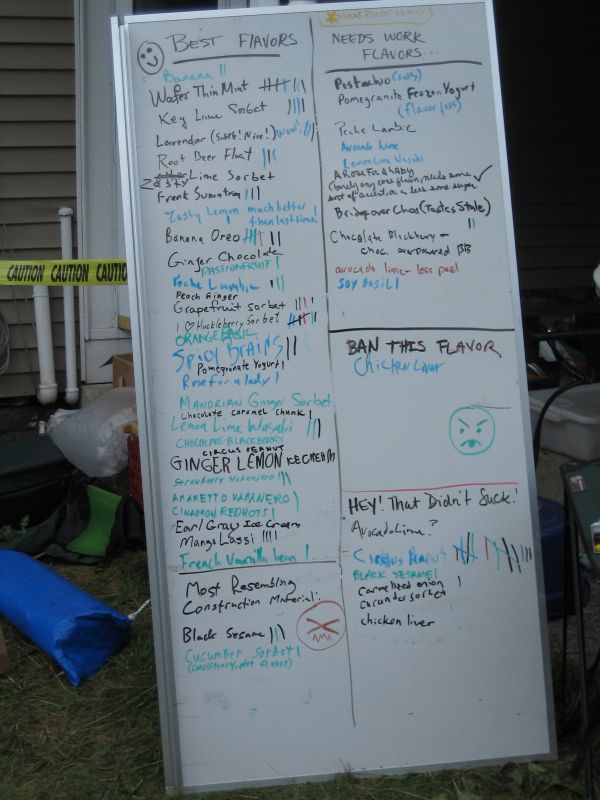 BEST FLAVORS
Banana II
Wafer Thin Mint
Key Lime Sorbet
Lavendar (Subtle! Nice!) Wow!
Root Beer Float
Zesty Lime Sorbet
Frank Sumatra
Zesty Lemon much better
than last time!
Banana Oreo
Ginger Chocolate
PASSIONFRUIT
Peche Lambic
Peach Ginger
Grapefruit sorbet
I ♡ Huckleberry Sorbet
ORANGE BASIL
SPICY BRAINS
Pomegranate Yogurt
Rose for a lady
MANDRIAN Ginger Sorbet
Chocolate caramel chunk
Lemon Lime Wasabi
CHOCOLATE BLACKBERRY
CIRCUS PEANUT
GINGER LEMON ICE CREAM
Strawberry Habanero
AMARETTO HABANERO
CINNAMON REDHOT
Earl Gray Ice Cream
Mango Lassi
French Vanilla bean
Most Resembling
Construction Material:
Black Sesame
Cucumber Sorbet
(consistency, not flavor)
NEEDS WORK
FLAVORS...
Pistachio (salty)
Pomegranite Frozen Yogurt
(flavorless)
Peche Lambic
Avocado Lime
Lemon Lime Wasabi
A Rose For A Lady
Bridgeover Choc (Tastes Stale)
Chocolate Blackberry -
choc. overpowered BB
avocado lime - less peel
SOY BASIL
BAN THIS FLAVOR
Chicken Liver
HEY! That Didn't Suck!
Avocado Lime?
Circus Peanut
BLACK SESAME
carmelized onion
cucumber sorbet
chicken liver
CAUTION CAUTION CAUTION